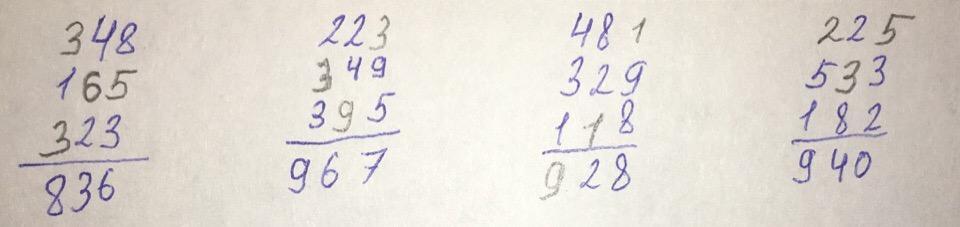 348 223 481 225
165 349 329 533
323 395 118 182
836 967 928 940